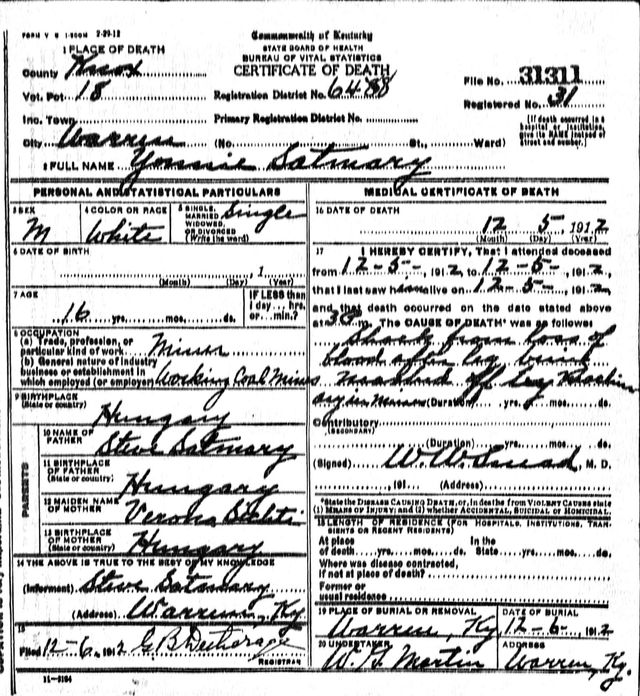 FORM V S 1-500M 2-29-12
Commonwealth of Kentucky
STATE BOARD OF HEALTH
BUREAU OF VITAL STATISTICS
CERTIFICATE OF DEATH
1 PLACE OF DEATH
County Knox
Vot. Pct 18
Registration District No. 64
File No. 31311
Registered No. 31
Inc. Town
Primary Registration District No.
City Warren (No. St., Ward)
[If death occurred in a hospital or institution, give its NAME instead of street and number.]
2 FULL NAME Yonnie Satmary
PERSONAL AND STATISTICAL PARTICULARS
3 SEX M
4 COLOR OR RACE White
5 SINGLE, MARRIED WIDOWED, OR DIVORCED (Write the word) Single
6 DATE OF BIRTH
, 1
(Month) (Day) (Year)
7 AGE
16 yrs. mos. ds.
IF LESS than 1 day... hrs. or... min.?
8 OCCUPATION
(a) Trade, profession, or particular kind of work Miner
(b) General nature of industry business or establishment in which employed (or employer) Working Coal Mines
9 BIRTHPLACE (State or country) Hungary
PARENTS
10 NAME OF FATHER Steve Satmary
11 BIRTHPLACE OF FATHER (State or country) Hungary
12 MAIDEN NAME OF MOTHER Verona
13 BIRTHPLACE OF MOTHER (State or country) Hungary
14 THE ABOVE IS TRUE TO THE BEST OF MY KNOWLEDGE
(Informant) Steve Satmary
(Address) Warren, Ky
15
Filed 12-6, 1912 G B
REGISTRAR
11-3184
MEDICAL CERTIFICATE OF DEATH
16 DATE OF DEATH
12 5, 1912
(Month) (Day) (Year)
17 I HEREBY CERTIFY, That I attended deceased
from 12-5-, 1912, to 12-5-, 1912,
that I last saw him alive on 12-5-, 1912,
and that death occurred on the date stated above
at m. The CAUSE OF DEATH* was as follows
Shock from loss of
blood after leg being
mashed off by
in Mines (Duration) yrs. mos. ds.
Contributory
(SECONDARY)
(Duration) yrs. mos. ds.
(Signed) W. W. Smead, M. D.
, 191 (Address)
*State the DISEASE CAUSING DEATH, or, in deaths from VIOLENT CAUSES state (1) MEANS OF INJURY; and (2) whether ACCIDENTAL, SUICIDAL or HOMICIDAL.
18 LENGTH OF RESIDENCE (FOR HOSPITALS, INSTITUTIONS, TRANSIENTS OR RECENT RESIDENTS)
At place of death yrs. mos. ds. In the State yrs. mos. ds.
Where was disease contracted, if not at place of death?
Former or usual residence
19 PLACE OF BURIAL OR REMOVAL
Warren, Ky,
DATE OF BURIAL
12-6-, 1912
20 UNDERTAKER
W. J. Martin
ADDRESS
Warren, Ky.